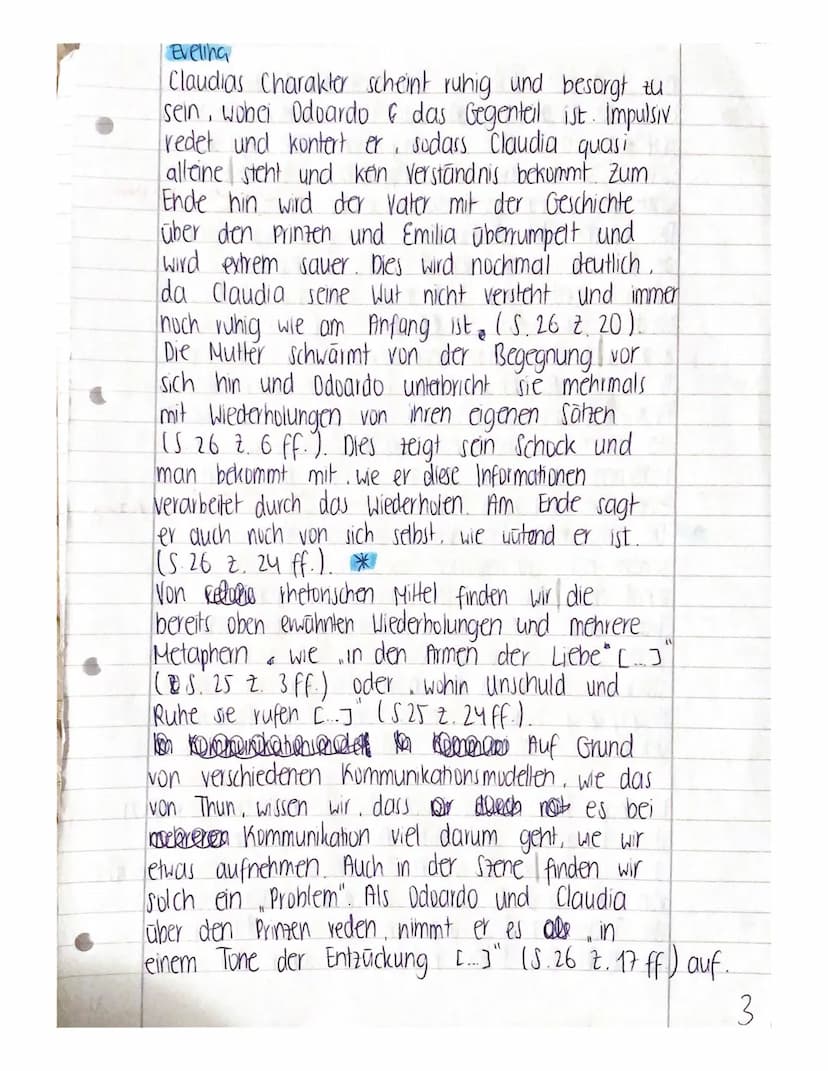 Evelina
Claudias Charakter scheint ruhig und besorgt zu
sein, wobei Odoardo das Gegenteil ist. Impulsiv
redet und kontert er, sodass Claudia quasi
alleine steht und kein Verständnis bekommt. Zum
Ende hin wird der Vater mit der Geschichte
über den Prinzen und Emilia überrumpelt und
wird extrem sauer. Dies wird nochmal deutlich,
da Claudia seine Wut nicht versteht und immer
noch ruhig wie am Anfang ist. (S. 26 Z. 20).
Die Mutter schwärmt von der Begegnung vor
sich hin und Odoardo unterbricht sie mehrmals
mit Wiederholungen von ihren eigenen Sätzen
(S 26 Z. 6 ff.). Dies zeigt sein Schock und
man bekommt mit, wie er diese Informationen
verarbeitet durch das Wiederholen. Am Ende sagt
er auch noch von sich selbst, wie wütend er ist.
(S. 26 Z. 24 ff.). *
Von rhetorischen Mittel finden wir die
bereits oben erwähnten Wiederholungen und mehrere
Metaphern, wie „in den Armen der Liebe" [...]"
(S. 25 Z. 3 ff.) oder „wohin Unschuld und
Ruhe sie rufen [...]" (S 25 Z. 24 ff.).
Auf Grund
von verschiedenen Kommunikationsmodellen, wie das
von Thun, wissen wir, dass es bei
Kommunikation viel darum geht, wie wir
etwas aufnehmen. Auch in der Szene finden wir
solch ein „Problem". Als Odoardo und Claudia
über den Prinzen reden, nimmt er es „in
einem Tone der Entzückung [...]" (S. 26 Z. 17 ff) auf.
3